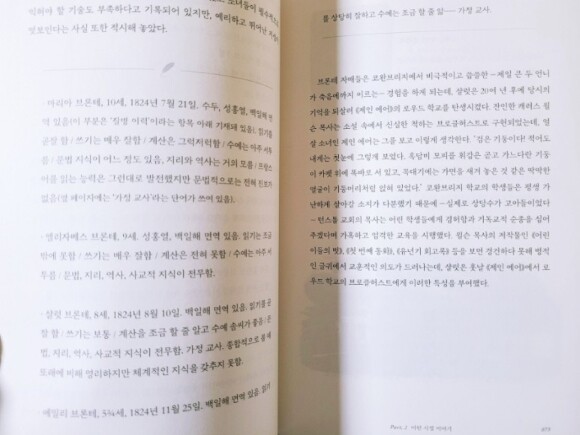 익혀야 할 기술도 부족하다고 기록되어 있지만, 예리하고 뛰어난
것보인다는 사실 또한 적시해 놓았다.
· 마리아 브론테, 10세, 1824년 7월 21일. 수두, 성홍열, 백일해 면
역 있음(이 부분은 '질병 이력'이라는 항목 아래 기재돼 있음). 읽기를
꽤 잘 함 / 쓰기는 매우 잘함 / 계산은 그럭저럭함 / 수예는 아주 서투
름 / 문법 지식이 어느 정도 있음, 지리와 역사는 거의 모름 / 프랑스
어를 읽는 능력은 그런대로 발전했지만 문법적으로는 전혀 진보가
없음(옆 페이지에는 '가정 교사'라는 단어가 쓰여 있음).
· 엘리자베스 브론테, 9세. 성홍열, 백일해 면역 있음. 읽기는 조금
밖에 못함 / 쓰기는 매우 잘함 / 계산은 전혀 못함 / 수예는 아주 서
투름 / 문법, 지리, 역사, 사교적 지식이 전무함.
· 샬럿 브론테, 8세, 1824년 8월 10일. 백일해 면역 있음. 읽기를 곧
잘 함 / 쓰기는 보통 / 계산을 조금 할 줄 알고 수예 솜씨가 좋음 / 문
법, 지리, 역사, 사교적 지식이 전무함. 가정 교사. 종합적으로 볼 때
또래에 비해 영리하지만 체계적인 지식을 갖추지 못함.
· 에밀리 브론테, 5¾세, 1824년 11월 25일. 백일해 면역 있음. 읽기
를 상당히 잘하고 수예는 조금 할 줄 앎── 가정 교사.
브론테 자매들은 코완브리지에서 비극적이고 슬픔한 ─제일 큰 두 언니
가 죽음에까지 이르는─ 경험을 하게 되는데, 샬럿은 20여 년 후에 당시의
기억을 되살려 《제인 에어》의 로우드 학교를 탄생시켰다. 잔인한 캐러스 윌
슨 목사는 소설 속에서 신실한 척하는 브로클허스트로 구현되었는데, 영
설 소녀인 제인 에어는 그를 보고 이렇게 생각한다. "검은 기둥이다! 적어도
내게는 첫눈에 그렇게 보였다. 흑담비 모피를 휘감은 곧고 가느다란 기둥
이 카펫 위에 똑바로 서 있고, 꼭대기에는 가면을 새겨 놓은 것 같은 딱딱한
얼굴이 기둥머리처럼 얹혀 있었다." 코완브리지 학교의 학생들은 평생 가
난하게 살아갈 소지가 다분했기 때문에 ─실제로 상당수가 고아들이었다
─ 턴스톨 교회의 목사는 어린 학생들에게 겸허함과 기독교적 순종을 심어
주겠다며 가혹하고 엄격한 교육을 시행했다. 윌슨 목사의 저작들인 《어린
이들의 벗》, 《첫 번째 동화》, 《유년기 회고록》 등을 보면 경건하다 못해 병적
인 글귀에서 교훈적인 의도가 드러나는데, 샬럿은 훗날 《제인 에어》에서 로
우드 학교의 브로클허스트에게 이러한 특성을 부여했다.
Part. 2 어린 시절 이야기